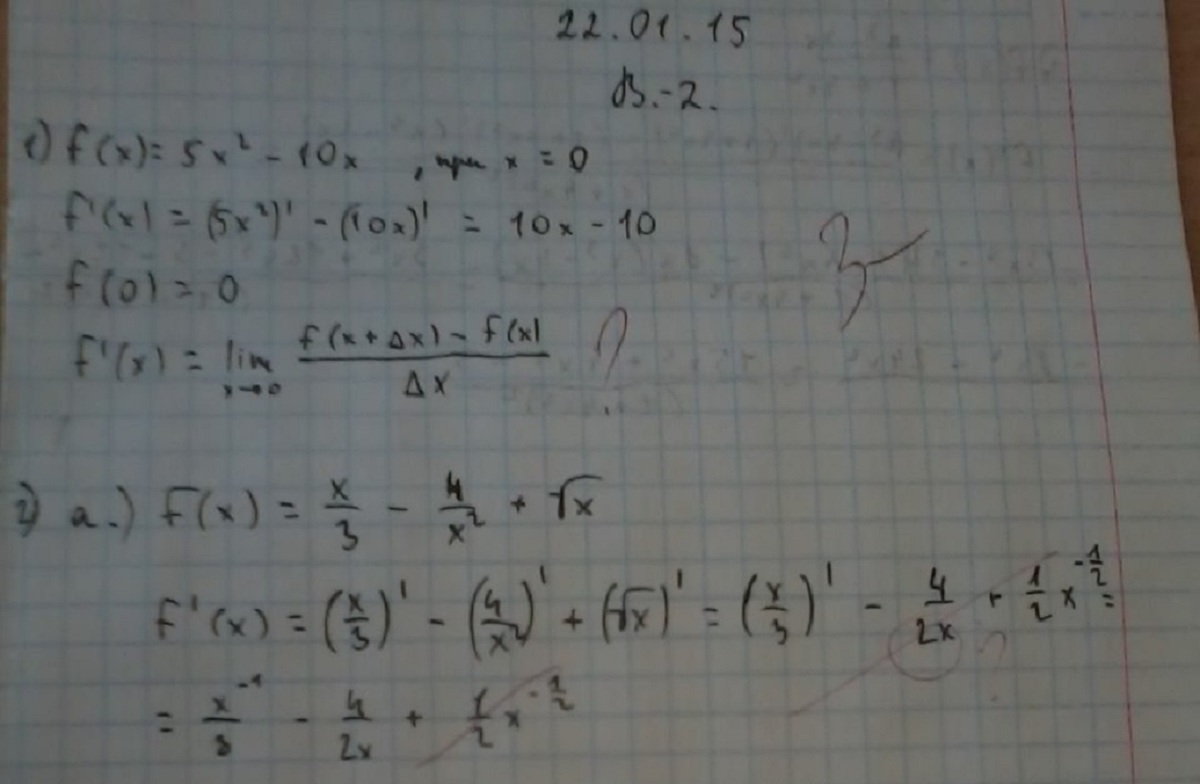 22.01.15
В.-2.
1) f(x) = 5x² - 10x , при x = 0
f'(x) = (5x²)' - (10x)' = 10x - 10
f(0) = 0
f'(x) = lim x→0 (f(x + Δx) - f(x)) / Δx ?
3
2) а.) f(x) = x/3 - 4/x² + √x
f'(x) = (x/3)' - (4/x²)' + (√x)' = (x/3)' - 4/2x + 1/2 x^(-1/2) =
?
= x^(-1)/3 - 4/2x + 1/2 x^(-1/2)